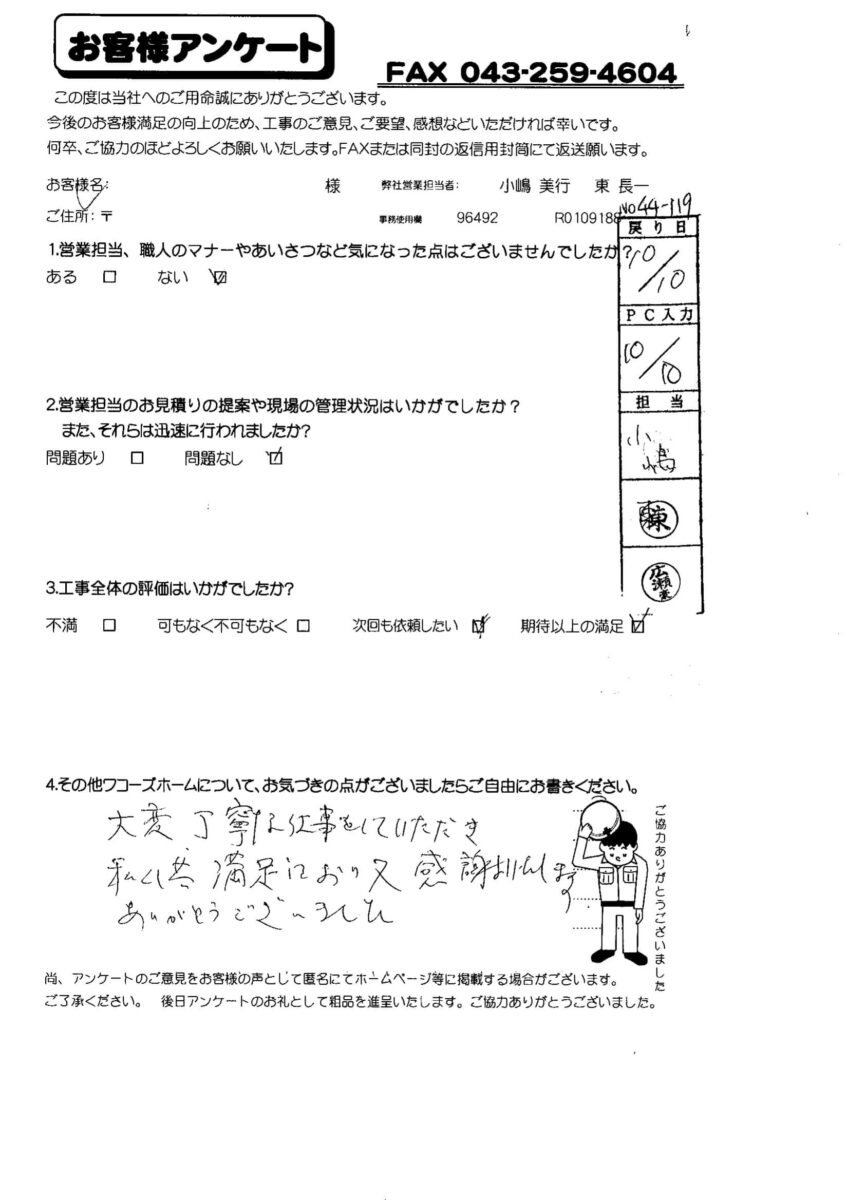 お客様アンケート
FAX 043-259-4604
この度は当社へのご用命誠にありがとうございます。
今後のお客様満足の向上のため、工事のご意見、ご要望、感想などいただければ幸いです。
何卒、ご協力のほどよろしくお願いいたします。FAXまたは同封の返信用封筒にて返送願います。
お客様名: 様 弊社営業担当者: 小嶋 美行 東 長一
ご住所:〒 事務使用欄 96492 R0109188
NO 44-119
戻り日
10/10
PC入力
10/10
担当
小嶋
広瀬
1.営業担当、職人のマナーやあいさつなど気になった点はございませんでしたか?
ある □ ない ☑
2.営業担当のお見積りの提案や現場の管理状況はいかがでしたか?
また、それらは迅速に行われましたか?
問題あり □ 問題なし ☑
3.工事全体の評価はいかがでしたか?
不満 □ 可もなく不可もなく □ 次回も依頼したい ☑ 期待以上の満足 ☑
4.その他ワコーズホームについて、お気づきの点がございましたらご自由にお書きください。
大変丁寧な仕事をしていただき
私し共満足しており又感謝いたします
ありがとうございました
ご協力ありがとうございました
尚、アンケートのご意見をお客様の声として匿名にてホームページ等に掲載する場合がございます。
ご了承ください。 後日アンケートのお礼として粗品を進呈いたします。ご協力ありがとうございました。